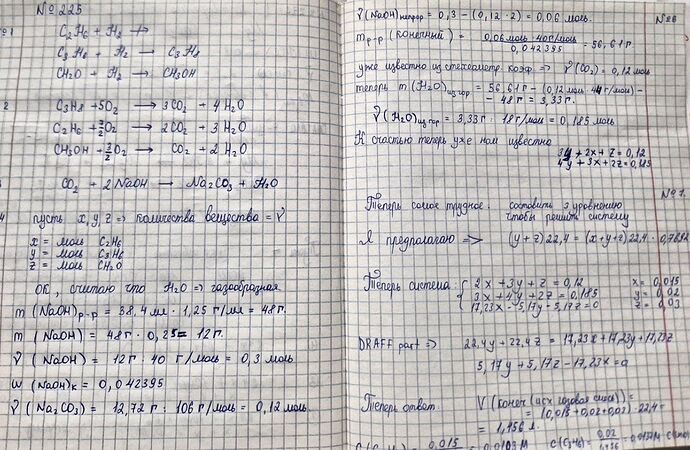 № 225
№1
C₂H₆ + H₂ ⟶
C₃H₆ + H₂ ⟶ C₃H₈
CH₂O + H₂ ⟶ CH₃OH
2
C₃H₈ + 5O₂ ⟶ 3CO₂ + 4H₂O
C₂H₆ + 7/2 O₂ ⟶ 2CO₂ + 3H₂O
CH₃OH + 3/2 O₂ ⟶ CO₂ + 2H₂O
3
CO₂ + 2NaOH ⟶ Na₂CO₃ + H₂O
4
пусть x, y, z => количества вещества = ν
x = моль C₂H₆
y = моль C₃H₆
z = моль CH₂O
ОК, считаю что H₂O => газообразная
m (NaOH)р-р = 38,4 мл · 1,25 г/мл = 48г.
m (NaOH) = 48г · 0,25 = 12г.
ν (NaOH) = 12г : 40 г/моль = 0,3 моль
ω (NaOH)к = 0,042395
ν (Na₂CO₃) = 12,72г : 106 г/моль = 0,12 моль
№6
ν (NaOH)непрор = 0,3 - (0,12 · 2) = 0,06 моль.
m р-р (конечный) = 0,06 моль · 40г/моль / 0,042395 = 56,61г.
уже известно из стехеометр. коэф => ν(CO₂) = 0,12моль
теперь m (H₂O)из гор = 56,61г - (0,12 моль · 44г/моль) -
- 48г = 3,33г.
ν(H₂O)из гор = 3,33г : 18г/моль = 0,185 моль
К счастью теперь уже нам известно
3y + 2x + z = 0,12
4y + 3x + 2z = 0,185
№7.
Теперь самое трудное: составить 3 уровнению
чтобы решить систему
Я предполагаю => (y + z) 22,4 = (x+y+z) 22,4 · 0,7692
Теперь система: 2x + 3y + z = 0,12 x = 0,015
3x + 4y + 2z = 0,185 y = 0,02
17,23x - 5,17y - 5,17z = 0 z = 0,03
DRAFF part => 22,4y + 22,4z = 17,23x + 17,23y + 17,23z
5,17y + 5,17z - 17,23x = 0
Теперь ответ V (конеч (исх газовая смесь)) =
= (0,015 + 0,02 + 0,03) · 22,4 =
= 1,456 л.
0,015
C(C₃H₆) = 0,02 / 1,456